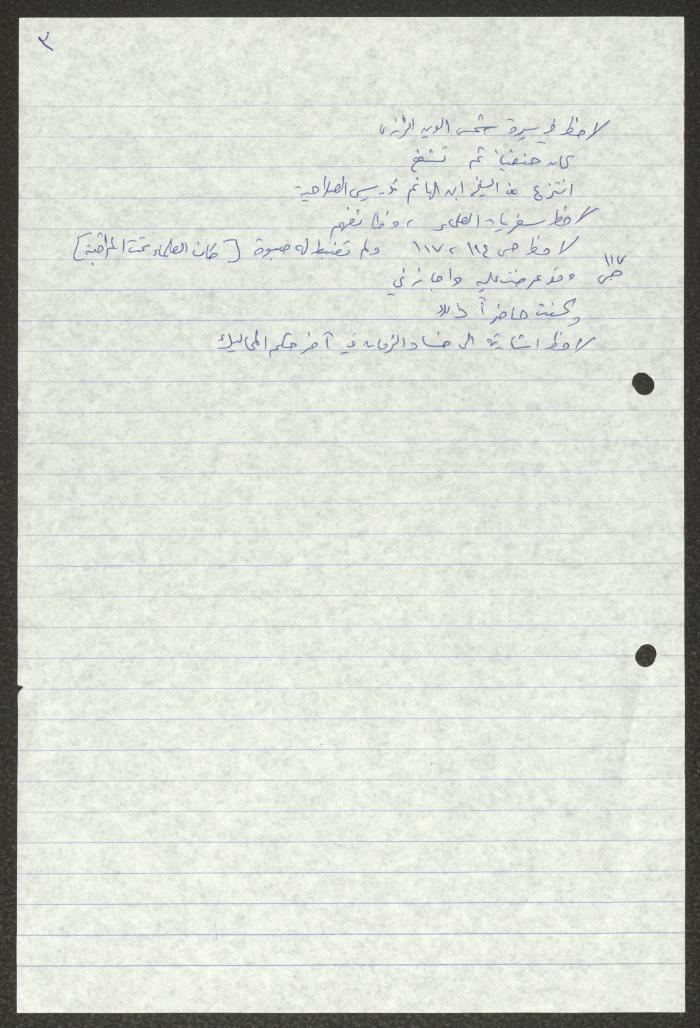 ٣
لاحظ في سيرة شمس الدين الهروي
كان حنفياً ثم تشفع
انتزع من الشيخ ابن الهائم تدريس الصلاحية
لاحظ سفريات العلماء، وظائفهم
لاحظ ص ١١٤، ١١٧ ولم تضبط له صبوة [كان العلماء تحت المراقبة]
ص ١١٧ وقد عرضت عليه وأجازني
وكنت حاضراً
لاحظ اشارته الى فساد الزمان في آخر حكم المماليك